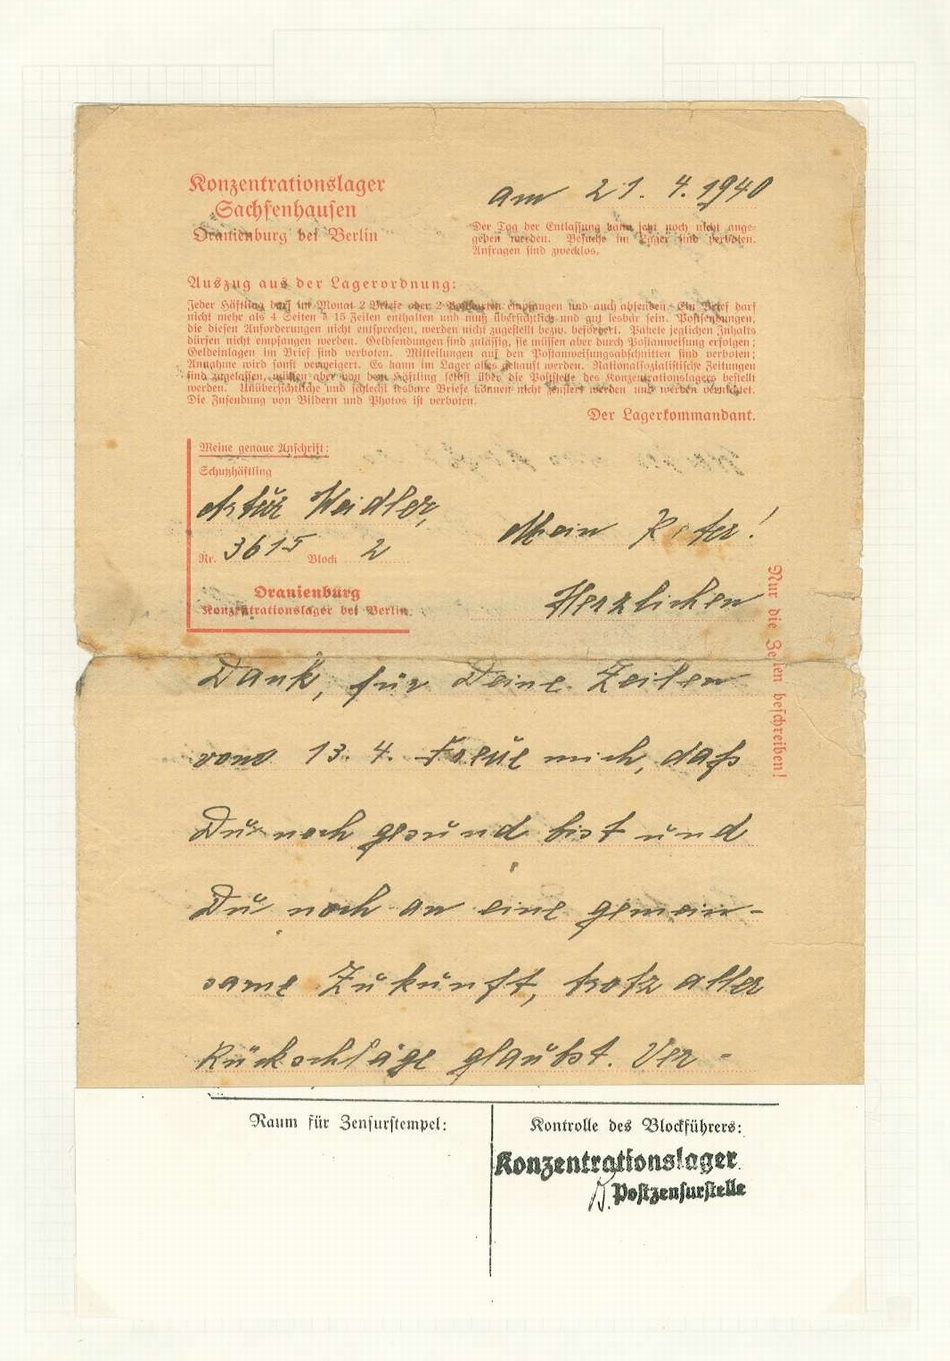 Konzentrationslager
Sachsenhausen
Oranienburg bei Berlin
am 21. 4. 1940
Der Tag der Entlassung kann jetzt noch nicht ange-
geben werden. Besuche im Lager sind verboten.
Anfragen sind zwecklos.
Auszug aus der Lagerordnung:
Jeder Häftling darf im Monat 2 Briefe oder 2 Postkarten empfangen und auch absenden. Ein Brief darf
nicht mehr als 4 Seiten à 15 Zeilen enthalten und muß übersichtlich und gut lesbar sein. Postsendungen,
die diesen Anforderungen nicht entsprechen, werden nicht zugestellt bezw. befördert. Pakete jeglichen Inhalts
dürfen nicht empfangen werden. Geldsendungen sind zulässig, sie müssen aber durch Postanweisung erfolgen;
Geldeinlagen im Brief sind verboten. Mitteilungen auf den Postanweisungsabschnitten sind verboten;
Annahme wird sonst verweigert. Es kann im Lager alles gekauft werden. Nationalsozialistische Zeitungen
sind zugelassen, müssen aber von dem Häftling selbst über die Poststelle des Konzentrationslagers bestellt
werden. Unübersichtliche und schlecht lesbare Briefe können nicht zensiert werden und werden vernichtet.
Die Zusendung von Bildern und Photos ist verboten.
Der Lagerkommandant.
Meine genaue Anschrift:
Schutzhäftling
Artur Weidler,
Nr. 3615 Block 2
Oranienburg
Konzentrationslager bei Berlin
Mein
Herzlichen
Nur die Zeilen beschreiben!
Dank, für Deine Zeilen
vom 13. 4. Freue mich, daß
Du noch gesund bist und
Du noch an eine gemein-
same Zukunft, trotz aller
Rückschläge glaubst. Ver-
Raum für Zensurstempel:
Kontrolle des Blockführers:
Konzentrationslager
Postzensurstelle